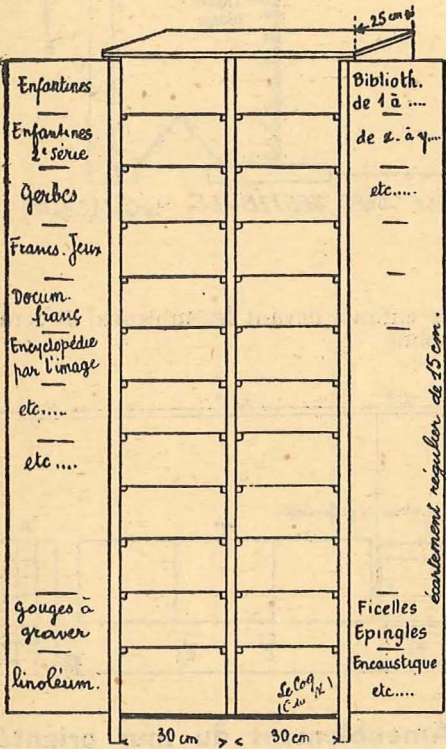 25 cm
Enfantines
Enfantines
2e série
Gerbes
Francs. Jeux
Docum.
franç
Encyclopédie
par l'image
etc.....
etc....
gouges à
graver
linoléum.
Biblioth.
de 1 à ....
de x. à y....
etc.....
écartement régulier de 15 cm.
Ficelles
Epingles
Encaustique
etc....
Le Coq
30 cm
30 cm